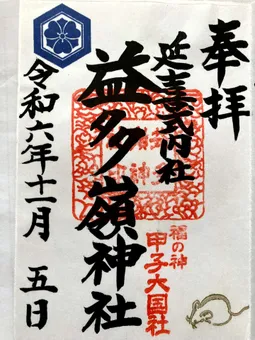 奉拝
延喜式内社
益多嶺神社
福の神
甲子大国社
令和六年十一月 五日